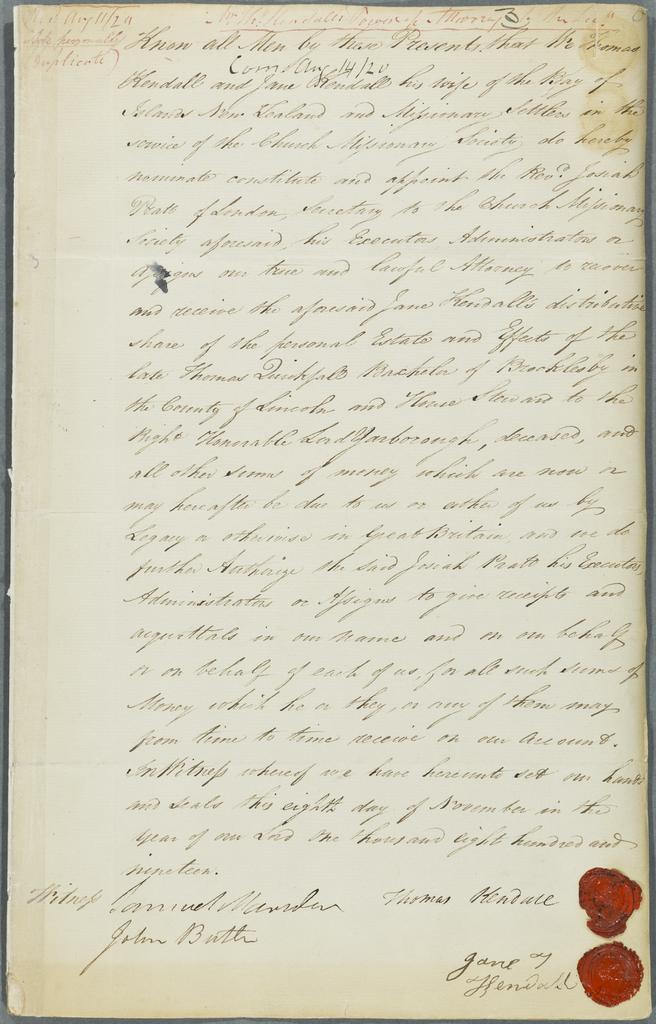 Recd Aug 11/20
Mr Kendall's Power of Attorney
3
duplicate
Know all Men by these Presents, that We Thomas
Com Aug 14/20
Kendall and Jane Kendall his wife of the Bay of
Islands New Zealand and Missionary Settlers in the
service of the Church Missionary Society do hereby
nominate constitute and appoint the Revd. Josiah
Pratt of London, Secretary to the Church Missionary
Society aforesaid, his Executors Administrators or
Assigns our true and lawful Attorney to recover
and receive the aforesaid Jane Kendall's distributive
share of the personal Estate and Effects of the
late Thomas Quickfall Bachelor of Brocklesby in
the County of Lincoln and House Steward to the
Right Honourable Lord Yarborough, deceased, and
all other sums of money which are now or
may hereafter be due to us or either of us by
Legacy or otherwise in Great Britain, and we do
further Authorize the said Josiah Pratt his Executors,
Administrators or Assigns to give receipts and
acquittals in our name and on our behalf
or on behalf of each of us, for all such sums of
Money which he or they, or any of them may
from time to time receive on our account.
In Witness whereof we have hereunto set our hands
and seals this eighth day of November in the
year of our Lord One thousand eight hundred and
nineteen.
Witness Samuel Marsden Thomas Kendall
John Butler
Jane
Kendall